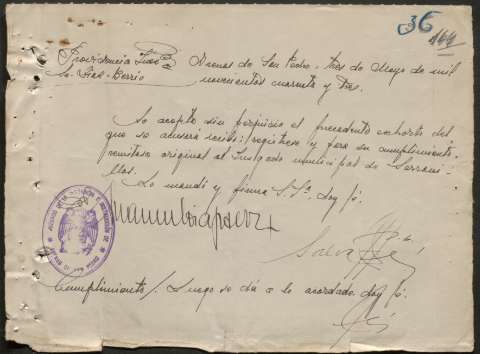 36
144
Providencia Juez
Sr. Vial-Berrio
Arenas de San Pedro - tres de Mayo de mil
novecientos cuarenta y tres.
Se acepta sin perjuicio el precedente exhorto del
que se acusará recibo; regístrese y para su cumplimiento
remítase original al Juzgado municipal de Serrani-
llos.
Lo mandó y firma S.Sª. doy fé.
JUZGADO DE 1ª INSTANCIA E INSTRUCCION DE
Cumplimiento/. Luego se dió a lo acordado doy fé.